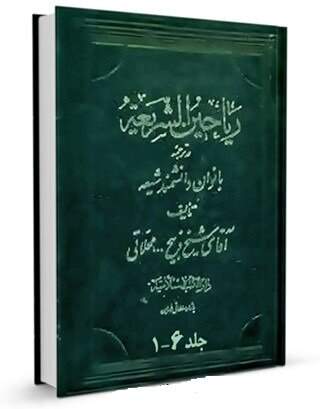 ریاحین الشریعه
در ترجمه
بانوان دانشمند شیعه
تألیف
آقای شیخ ذبیح ... محلاتی
دارالکتب الاسلامیه
جلد ۶-۱